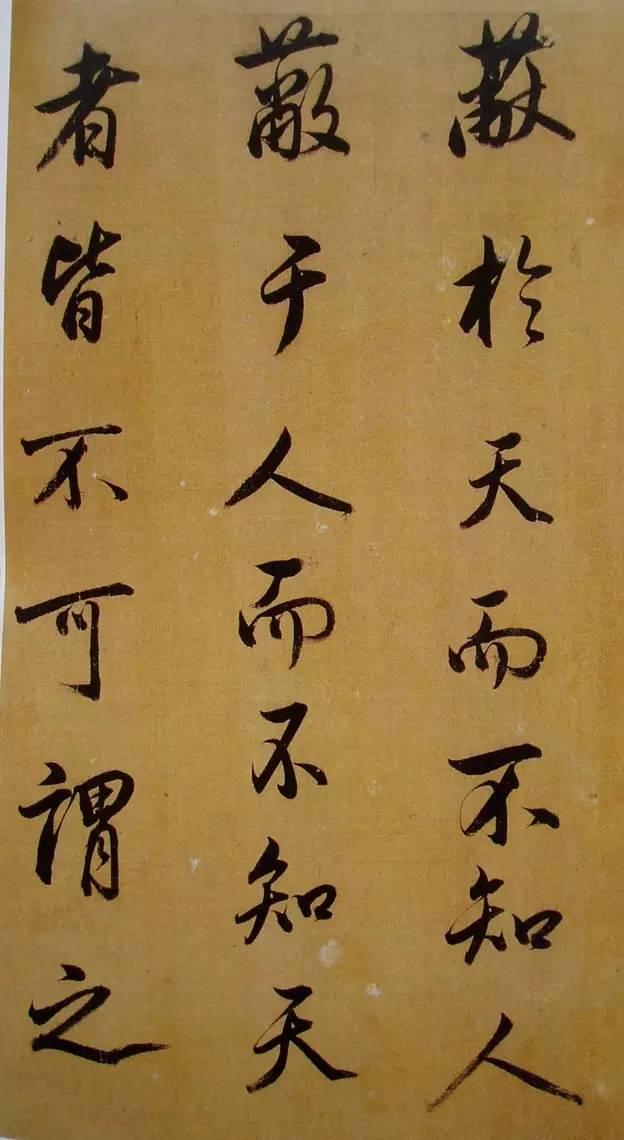 蔽於天而不知人
蔽于人而不知天
者皆不可謂之